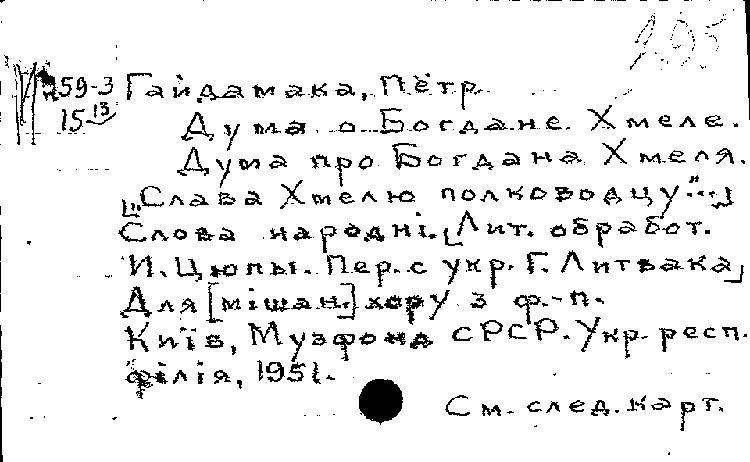 1.95
59-3 Гайдамака, Пётр
15 13 Дума о Богдане Хмеле.
Дума про Богдана Хмеля.
["Слава Хмелю полководцу"...]
Слова народні. [Лит. обработ.
И. Цюпы. Пер. с укр. Г. Литвака]
Для [мішан.] хору з ф.-п.
Київ, Музфонд СРСР. Укр. респ.
філія, 1951.
См. след. карт.